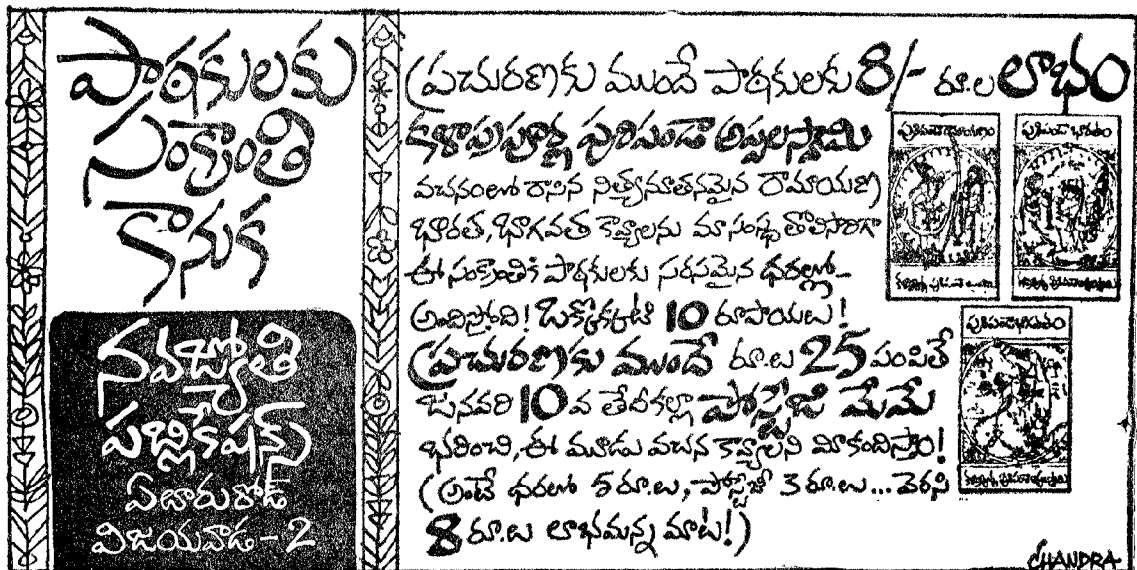 పాఠకులకు
సంక్రాంతి
కానుక
నవజ్యోతి
పబ్లికేషన్స్
ఏలూరురోడ్
విజయవాడ - 2
ప్రచురణకు ముందే పాఠకులకు 8/- రూ.ల లాభం
కళాప్రపూర్ణ పురిపండా అప్పలస్వామి
వచనంలో రాసిన నిత్యనూతనమైన రామాయణ
భారత, భాగవత కావ్యాలను మా సంస్థ తొలిసారిగా
ఈ సంక్రాంతికి పాఠకులకు సరసమైన ధరల్లో
అందిస్తోంది! ఒక్కొక్కటి 10 రూపాయలు!
ప్రచురణకు ముందే రూ.లు 25 పంపితే
జనవరి 10వ తేదీకల్లా పోస్టేజి మేమే
భరించి, ఈ మూడు వచన కావ్యాలని మీకందిస్తాం!
(అంటే ధరలో 5 రూ.లు, పోస్టేజీ 3 రూ.లు... వెరసి
8 రూ.లు లాభమన్న మాట!)
పురిపండా రామాయణం
పురిపండా భారతం
పురిపండా భాగవతం
CHANDRA